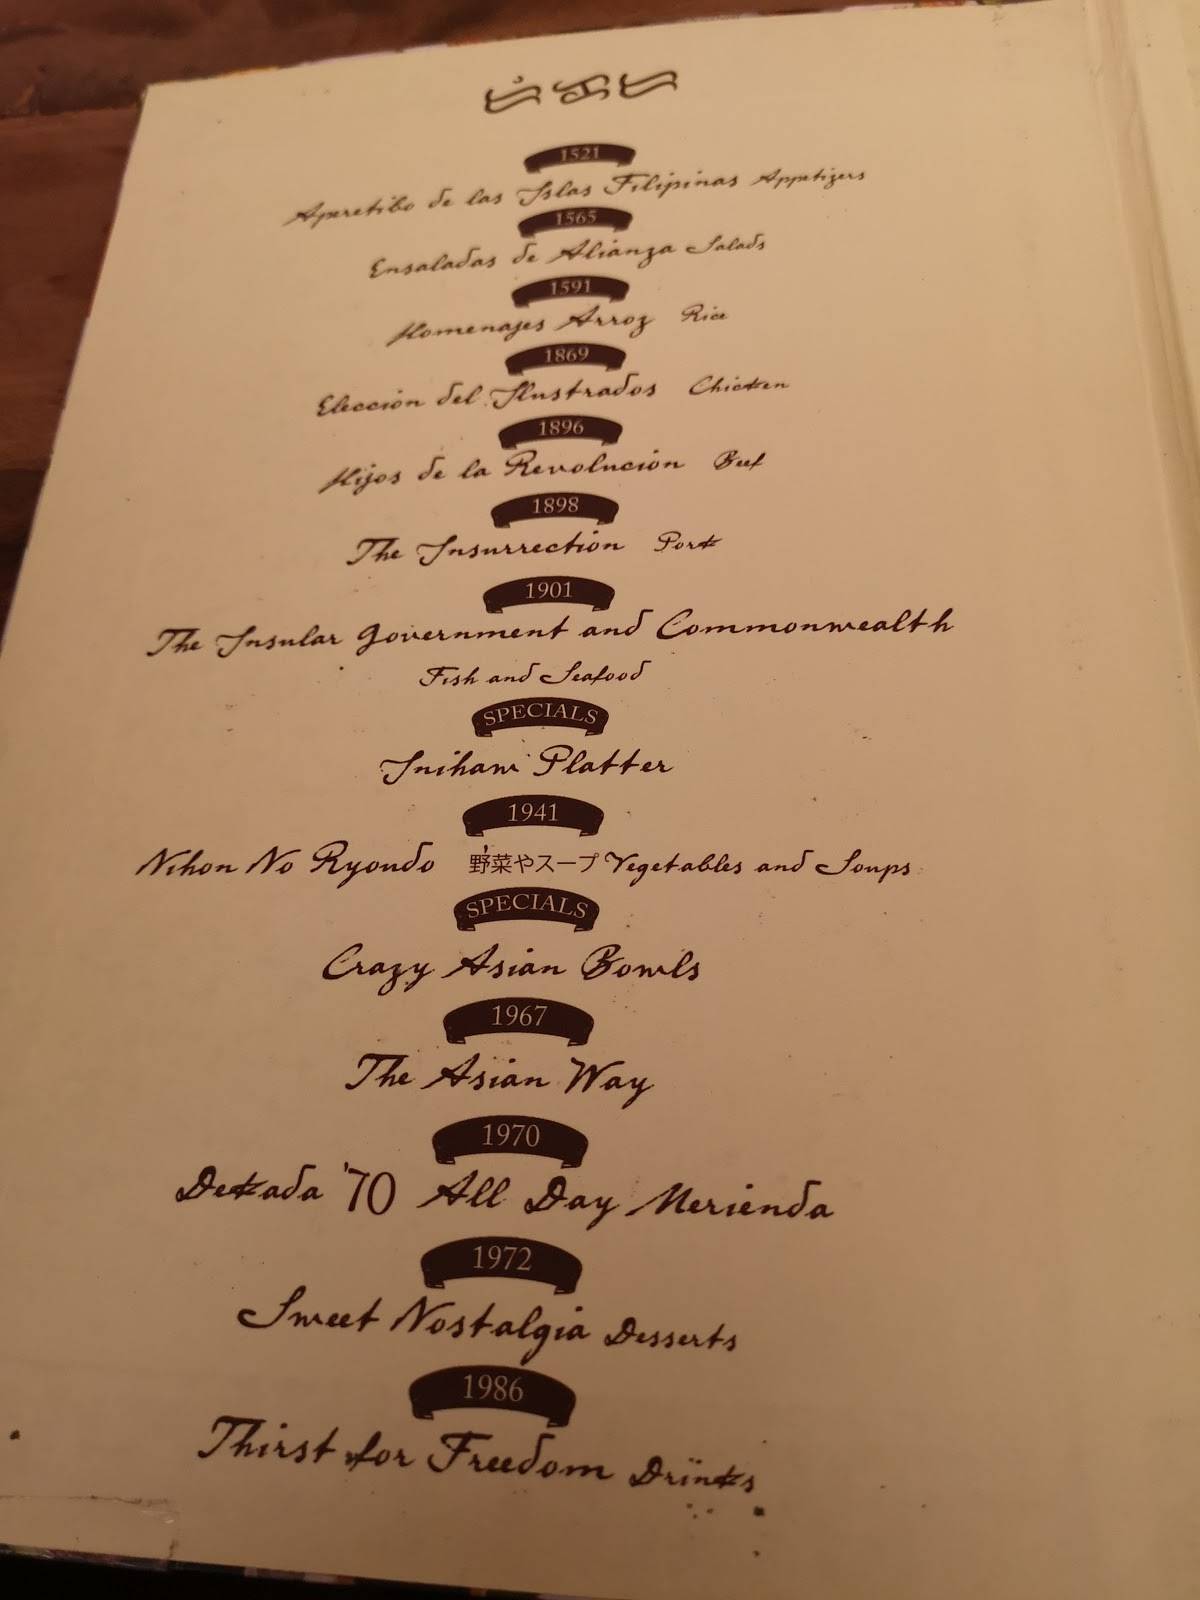 1521
Aperetibo de las Islas Filipinas Appetizers
1565
Ensaladas de Alianza Salads
1591
Homenajes Arroz Rice
1869
Elección del Ilustrados Chicken
1896
Hijos de la Revolución Beef
1898
The Insurrection Pork
1901
The Insular Government and Commonwealth
Fish and Seafood
SPECIALS
Inihaw Platter
1941
Nihon No Ryoudo 野菜やスープ Vegetables and Soups
SPECIALS
Crazy Asian Bowls
1967
The Asian Way
1970
Dekada '70 All Day Merienda
1972
Sweet Nostalgia Desserts
1986
Thirst for Freedom Drinks